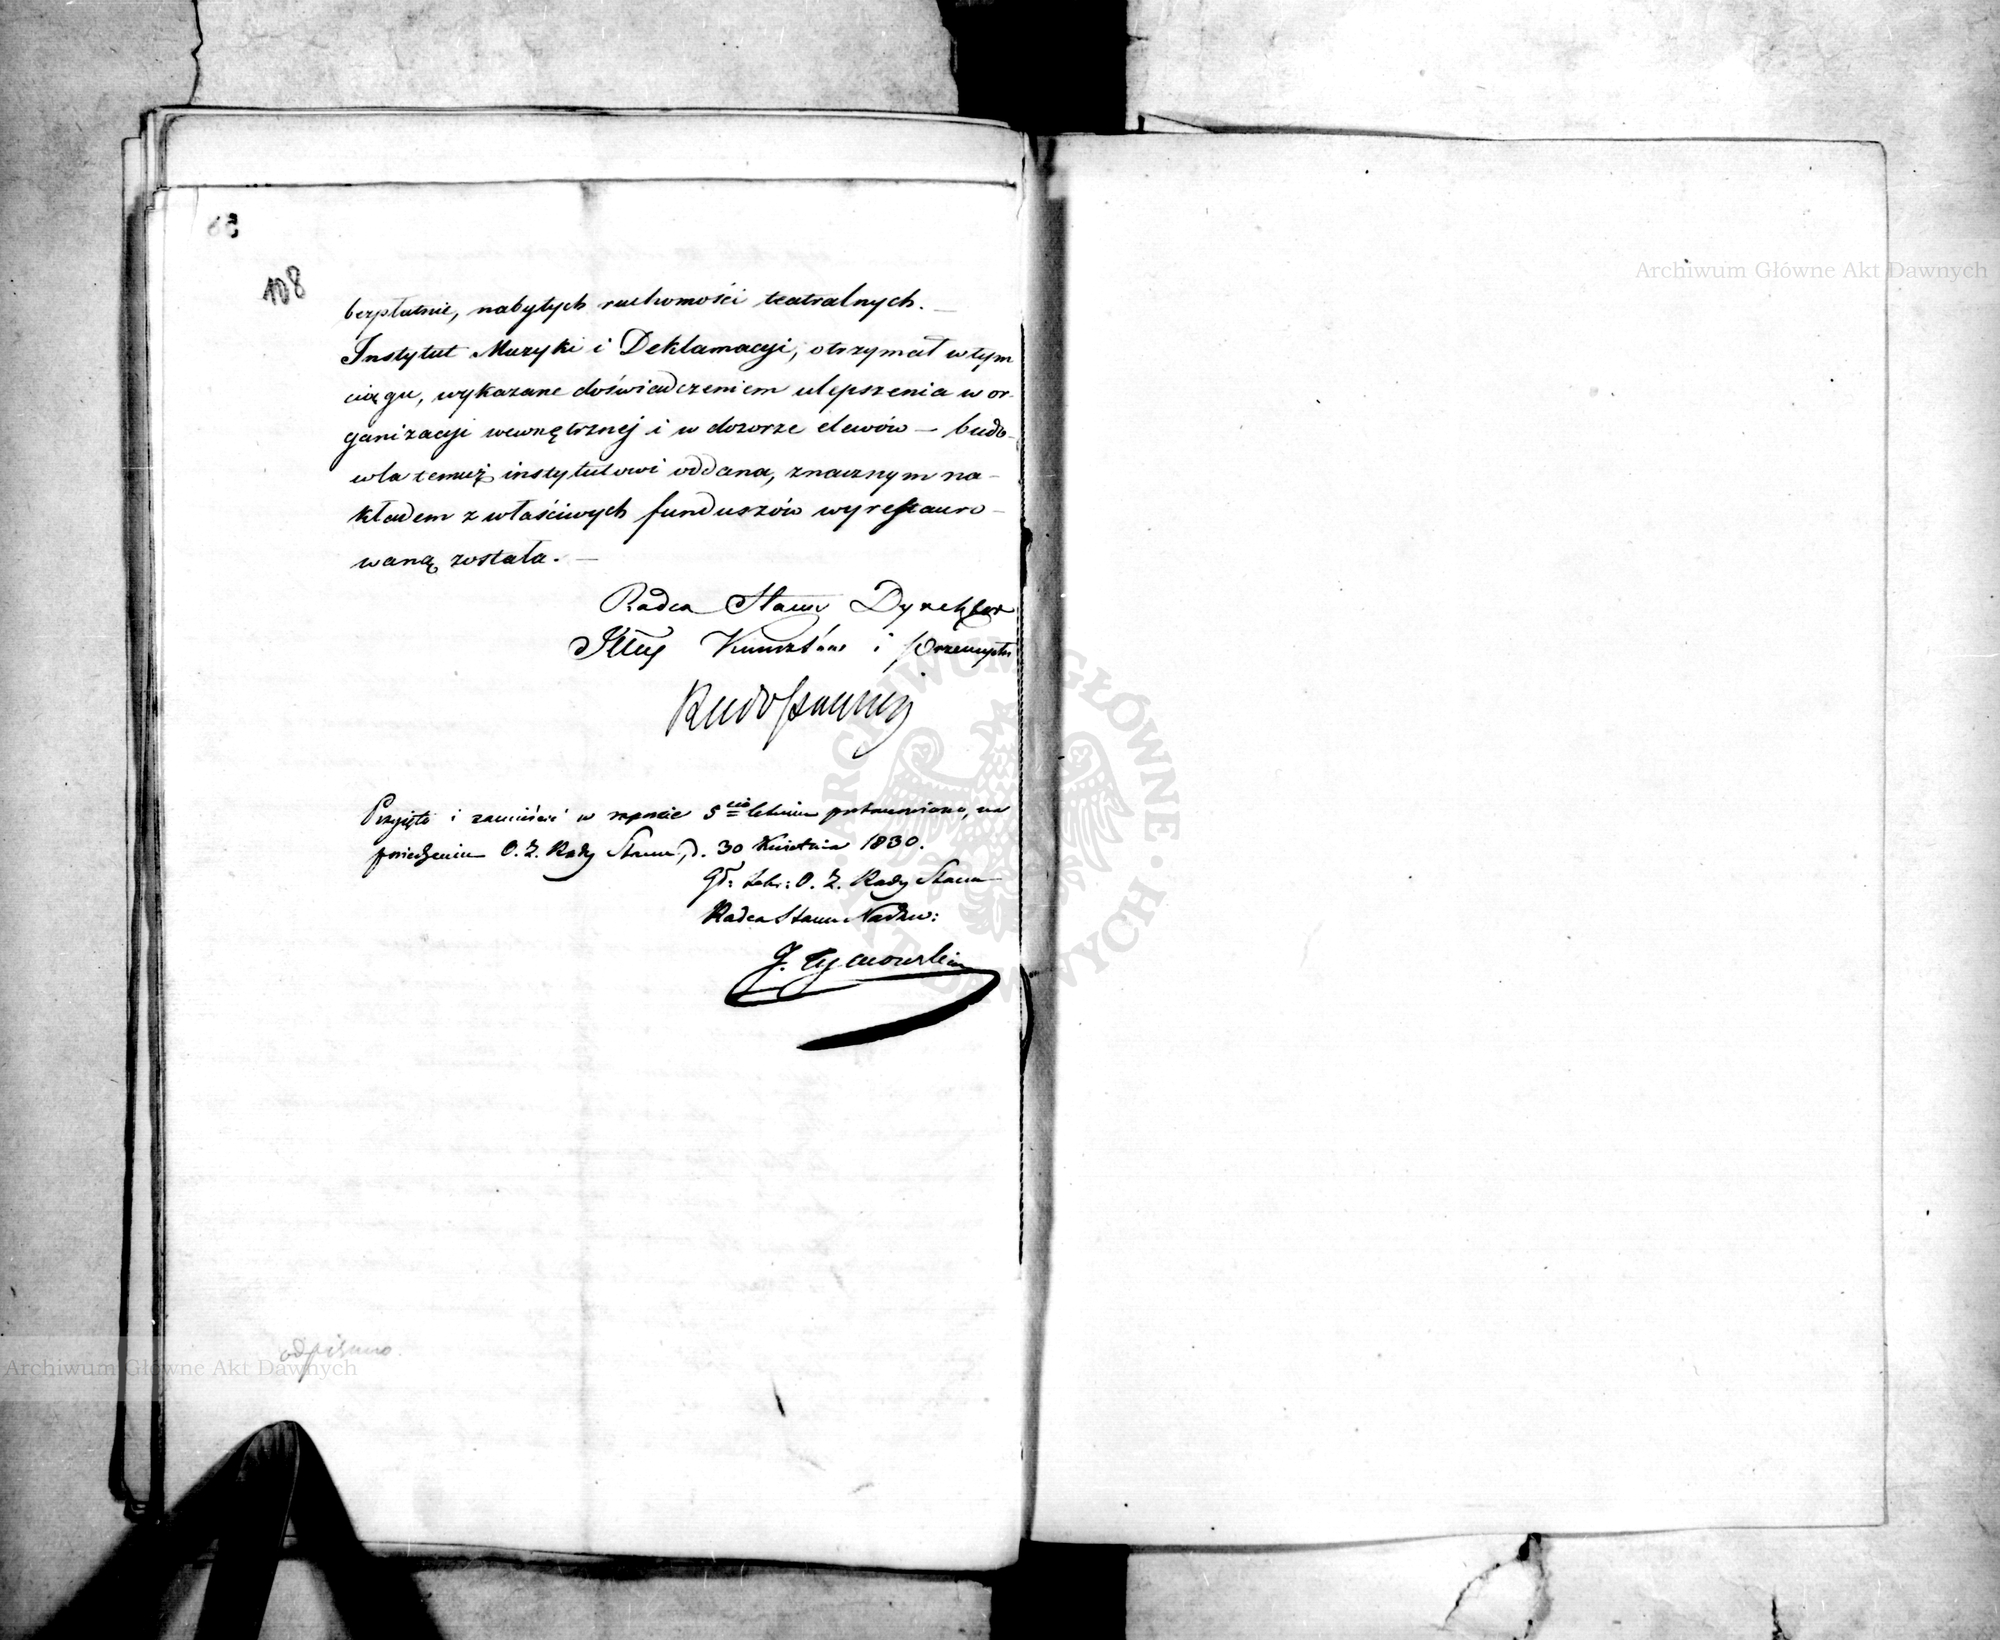 108
bezpłatnie, nabytych ruchomości teatralnych. —
Instytut Muzyki i Deklamacyi, otrzymał w tym
ciągu, wykazane doświadczeniem ulepszenia w or-
ganizacyi wewnętrznej i w dozorze elewów — budo-
wla temuż instytutowi oddana, znacznym na-
kładem z właściwych funduszów wyrestauro-
waną została. —
Radca Stanu Dyrektor
Kunsztów i Przemysłu
Przyjęto i zamieścić w raporcie 5cio letnim postanowiono, na
posiedzeniu O. Z. Rady Stanu, d. 30 Kwietnia 1830.
O. Z. Rady Stanu
Radca Stanu Nadzw:
J. Tymowski
odpisano.
Archiwum Główne Akt Dawnych
Archiwum Główne Akt Dawnych
ARCHIWUM GŁÓWNE AKT DAWNYCH